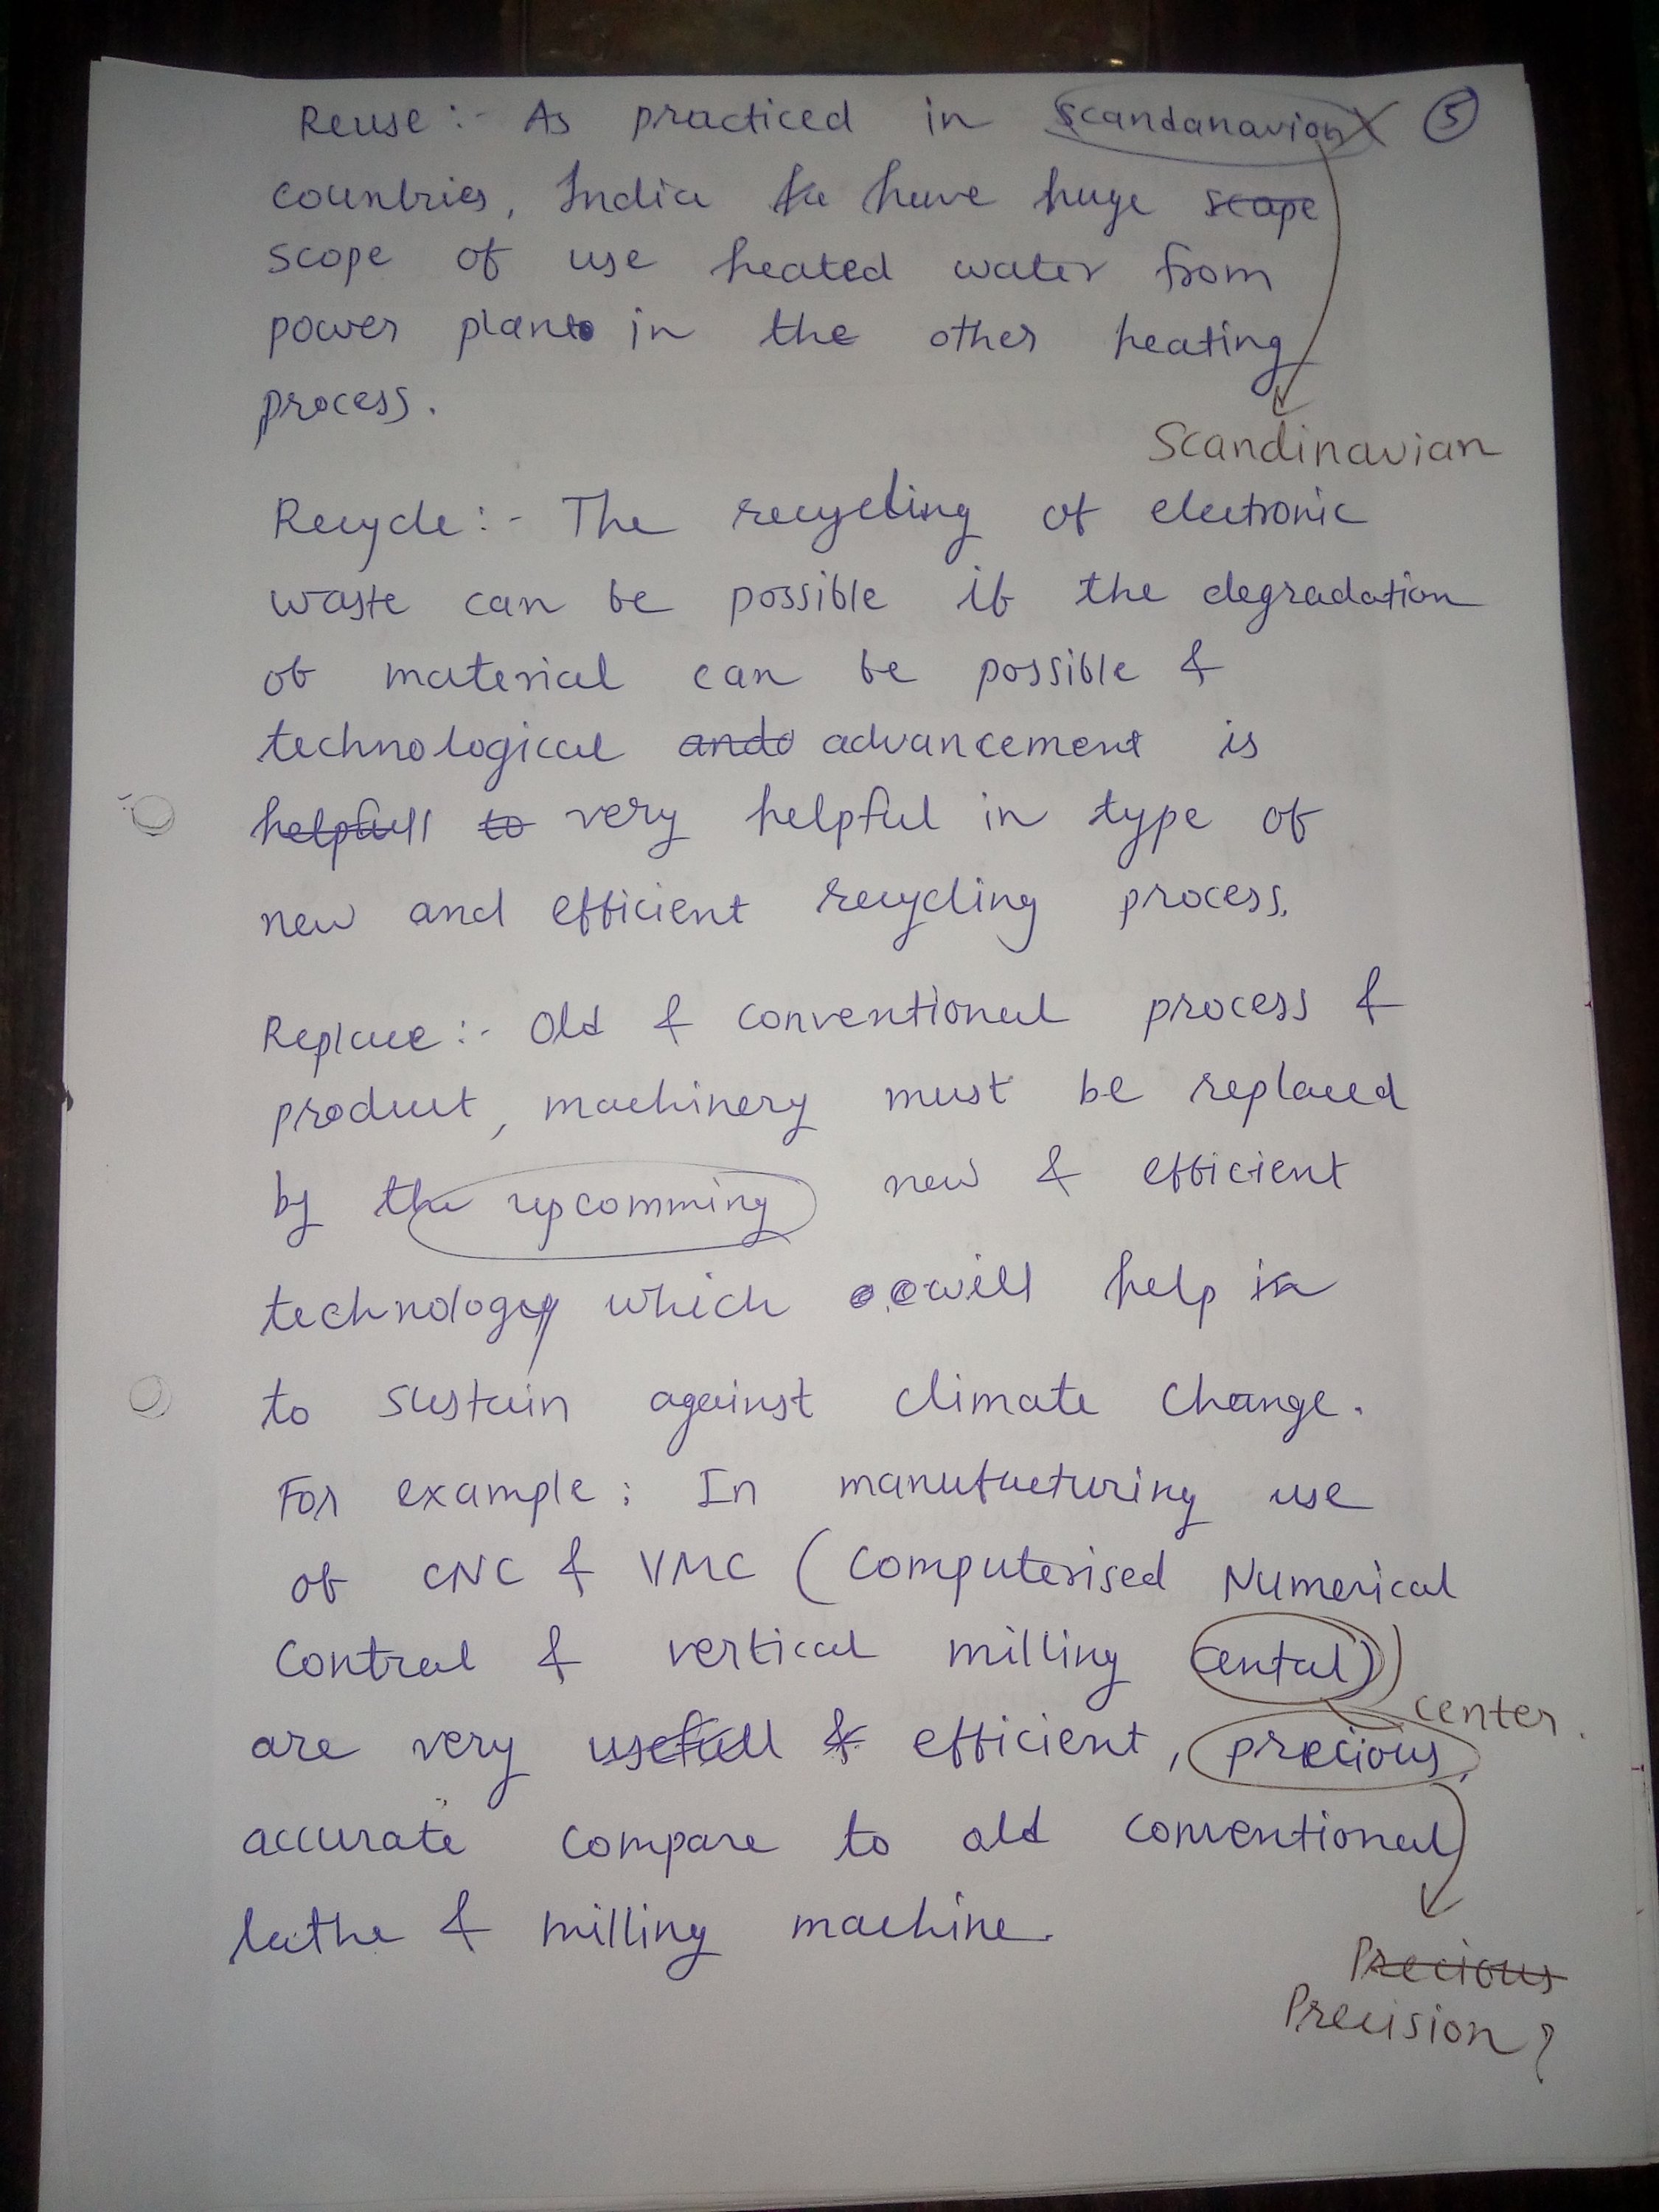 Reuse :- As practiced in scandanavion ⑤
countries, India ha have huge scape
scope of use heated water from
power plants in the other heating
process.
Scandinavian
Recycle :- The recycling of electronic
waste can be possible if the degradation
of material can be possible &
technological ando advancement is
helpfull to very helpful in type of
new and efficient recycling process.
Replace :- Old & conventional process &
product, machinery must be replaced
by the upcomming new & efficient
technology which will help in
to sustain against climate change.
For example : In manufacturing use
of CNC & VMC (Computerised Numerical
Control & vertical milling cental)
center.
are very usefull & efficient, precious,
accurate compare to old conventional
lathe & milling machine.
Precious
Precision ?